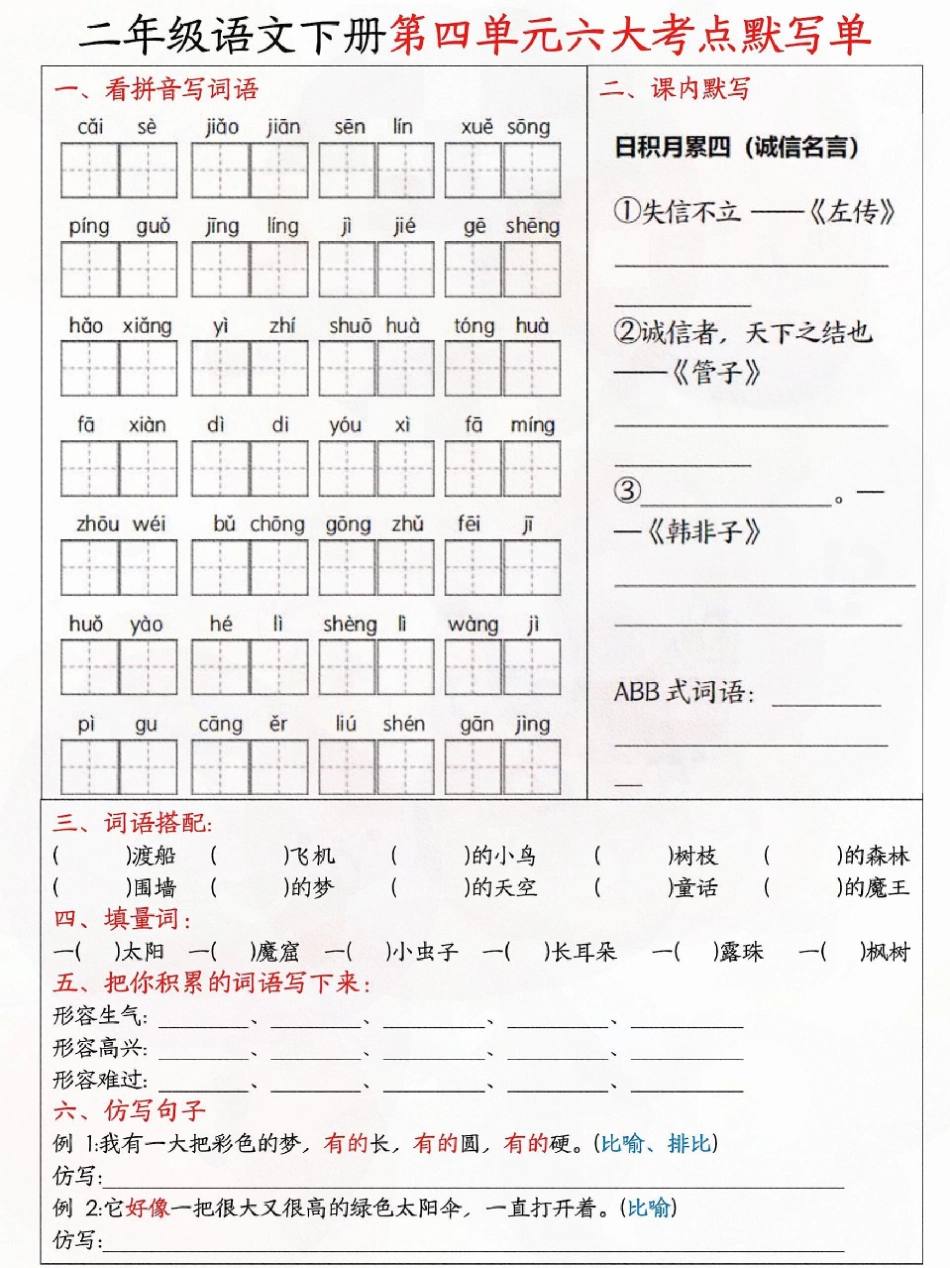 二年级语文下册第四单元六大考点默写单
一、看拼音写词语
cǎi sè jiǎo jiān sēn lín xuě sōng
píng guǒ jīng líng jì jié gē shēng
hǎo xiǎng yì zhí shuō huà tóng huà
fā xiàn dì di yóu xì fā míng
zhōu wéi bǔ chōng gōng zhǔ fēi jī
huǒ yào hé lì shèng lì wàng jì
pì gu cāng ěr liú shén gān jìng
二、课内默写
日积月累四（诚信名言）
①失信不立 ——《左传》
②诚信者，天下之结也
——《管子》
③______________。—
—《韩非子》
ABB 式词语：________
三、词语搭配:
( )渡船 ( )飞机 ( )的小鸟 ( )树枝 ( )的森林
( )围墙 ( )的梦 ( )的天空 ( )童话 ( )的魔王
四、填量词：
一( )太阳 一( )魔窟 一( )小虫子 一( )长耳朵 一( )露珠 一( )枫树
五、把你积累的词语写下来：
形容生气: ________、________、________、________、________
形容高兴: ________、________、________、________、________
形容难过: ________、________、________、________、________
六、仿写句子
例 1:我有一大把彩色的梦，有的长，有的圆，有的硬。(比喻、排比)
仿写:________________
例 2:它好像一把很大又很高的绿色太阳伞，一直打开着。(比喻)
仿写:________________